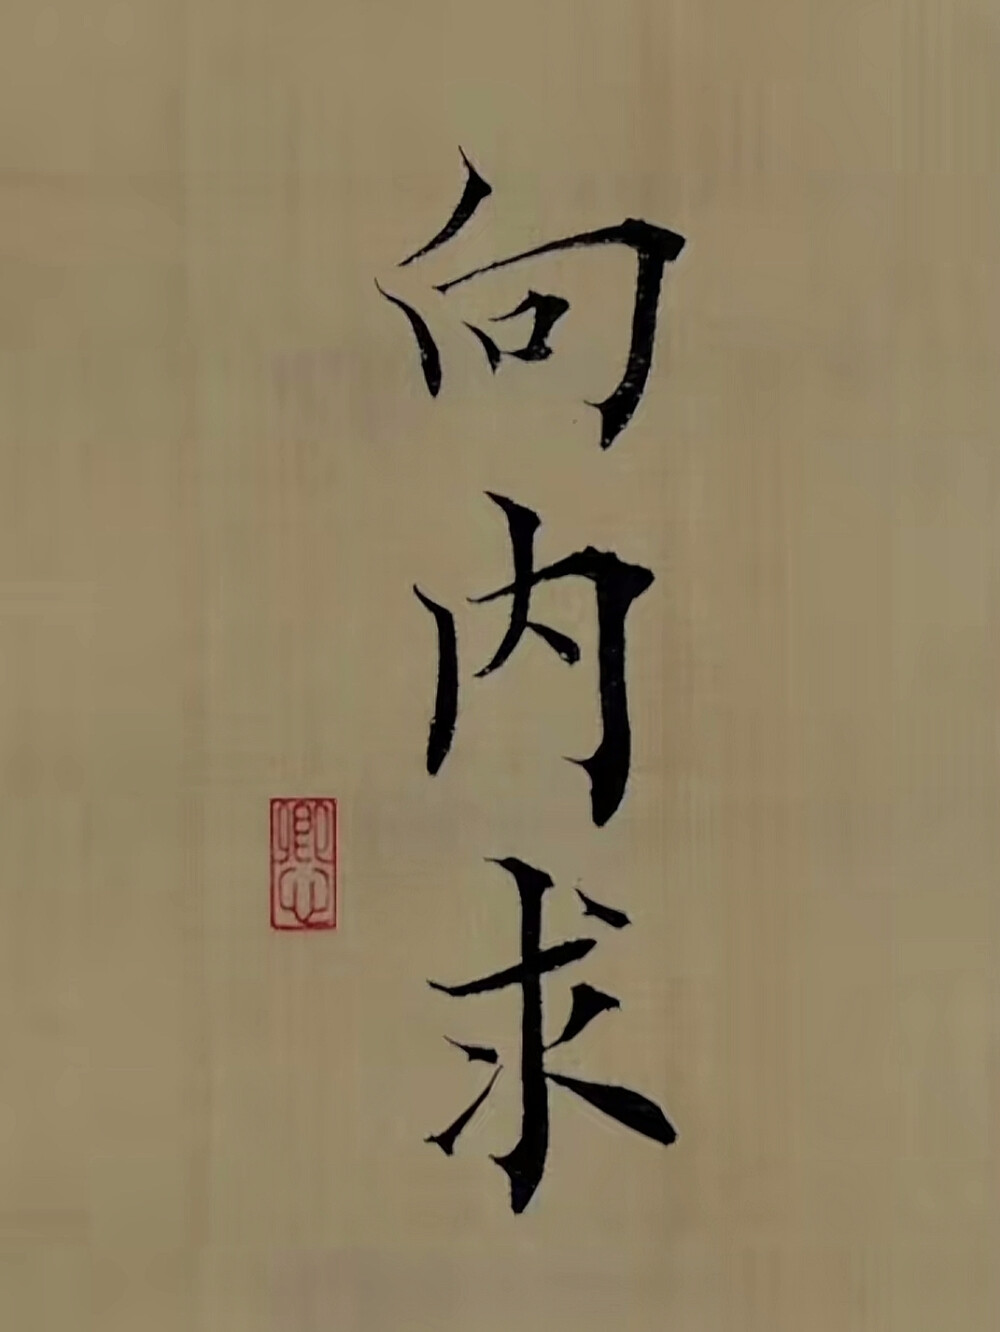 向内求